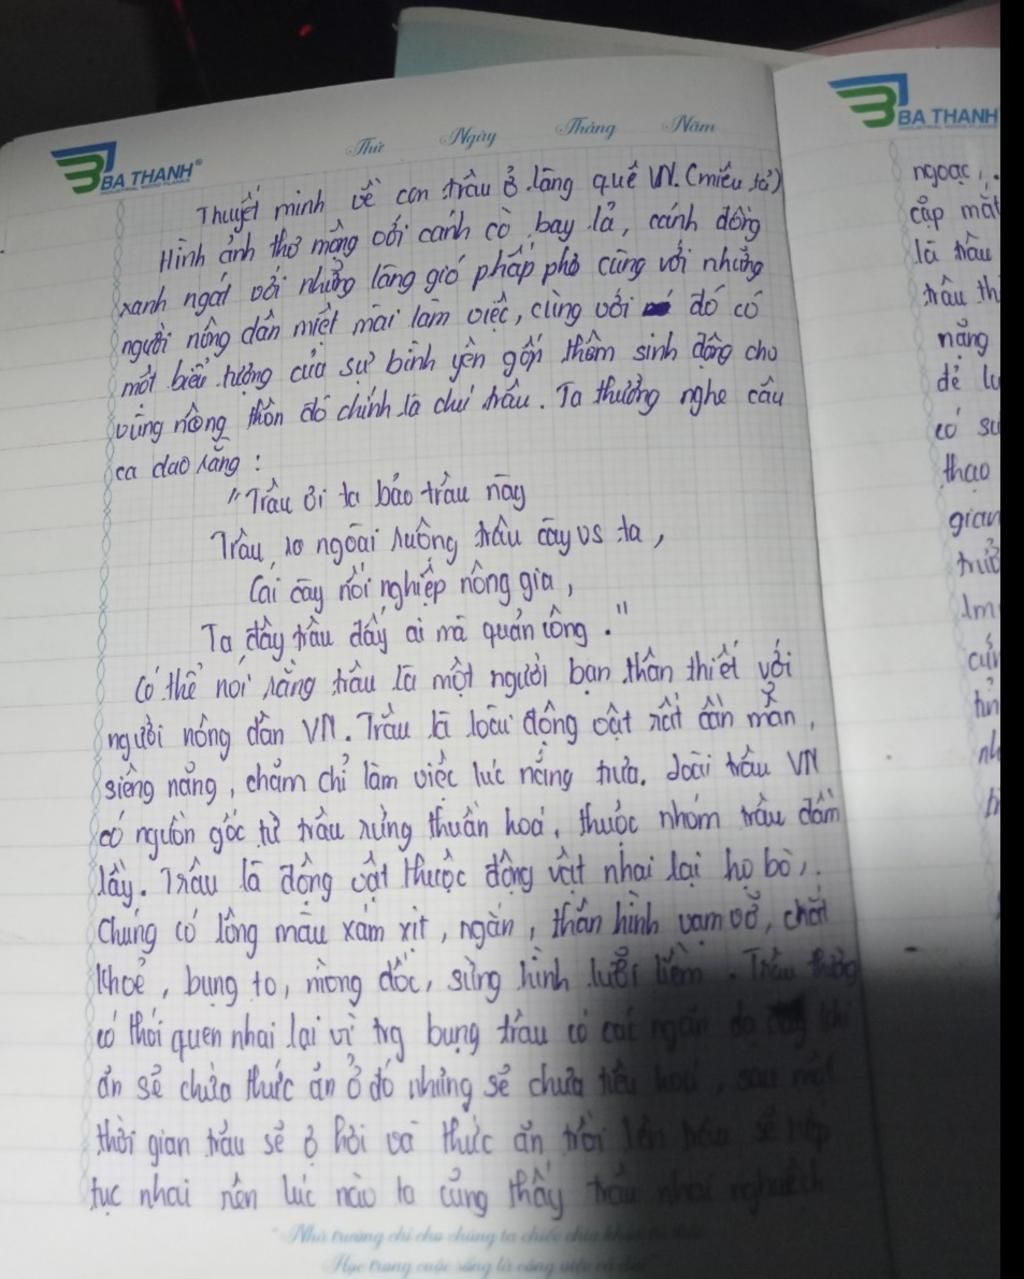 BA THANH®
Thứ Ngày Tháng Năm
BA THANH
Thuyết minh về con trâu ở làng quê VN. (miêu tả)
Hình ảnh thơ mộng với cánh cò bay lả, cánh đồng
xanh ngát với những làng gió phấp phò cũng với những
người nông dân miệt mài làm việc, cùng với đó có
một biểu tượng của sự bình yên góp thêm sinh động cho
vùng nông thôn đó chính là chú trâu. Ta thường nghe câu
ca dao rằng:
"Trâu ơi ta bảo trâu này
Trâu ra ngoài ruộng trâu cày vs ta,
Cái cày nối nghiệp nông gia,
Ta đây trâu đấy ai mà quản công."
Có thể nói rằng trâu là một người bạn thân thiết với
người nông dân VN. Trâu là loài động vật rất cần mẫn,
siêng năng, chăm chỉ làm việc lúc nắng trưa. Loài trâu VN
có nguồn gốc từ trâu rừng thuần hoá, thuộc nhóm trâu đầm
lầy. Trâu là động vật thuộc động vật nhai lại họ bò,
Chúng có lông màu xám xịt, ngắn, thân hình vạm vỡ, chắc
khoẻ, bụng to, mông dốc, sừng hình lưỡi liềm. Trâu thường
có thói quen nhai lại vì trg bụng trâu có các ngăn do khi
ăn sẽ chứa thức ăn ở đó nhưng sẽ chưa tiêu hoá, sau một
thời gian trâu sẽ ợ hơi và thức ăn trôi lên trâu sẽ tiếp
tục nhai nên lúc nào ta cũng thấy trâu nhai
"Nhà trường chỉ cho chúng ta chiếc chìa khóa tri thức
Học trong cuộc sống là công việc cả đời"
ngoạc,
cặp mắt
là trâu
trâu th
nặng
dẻ
có
thạo
gian